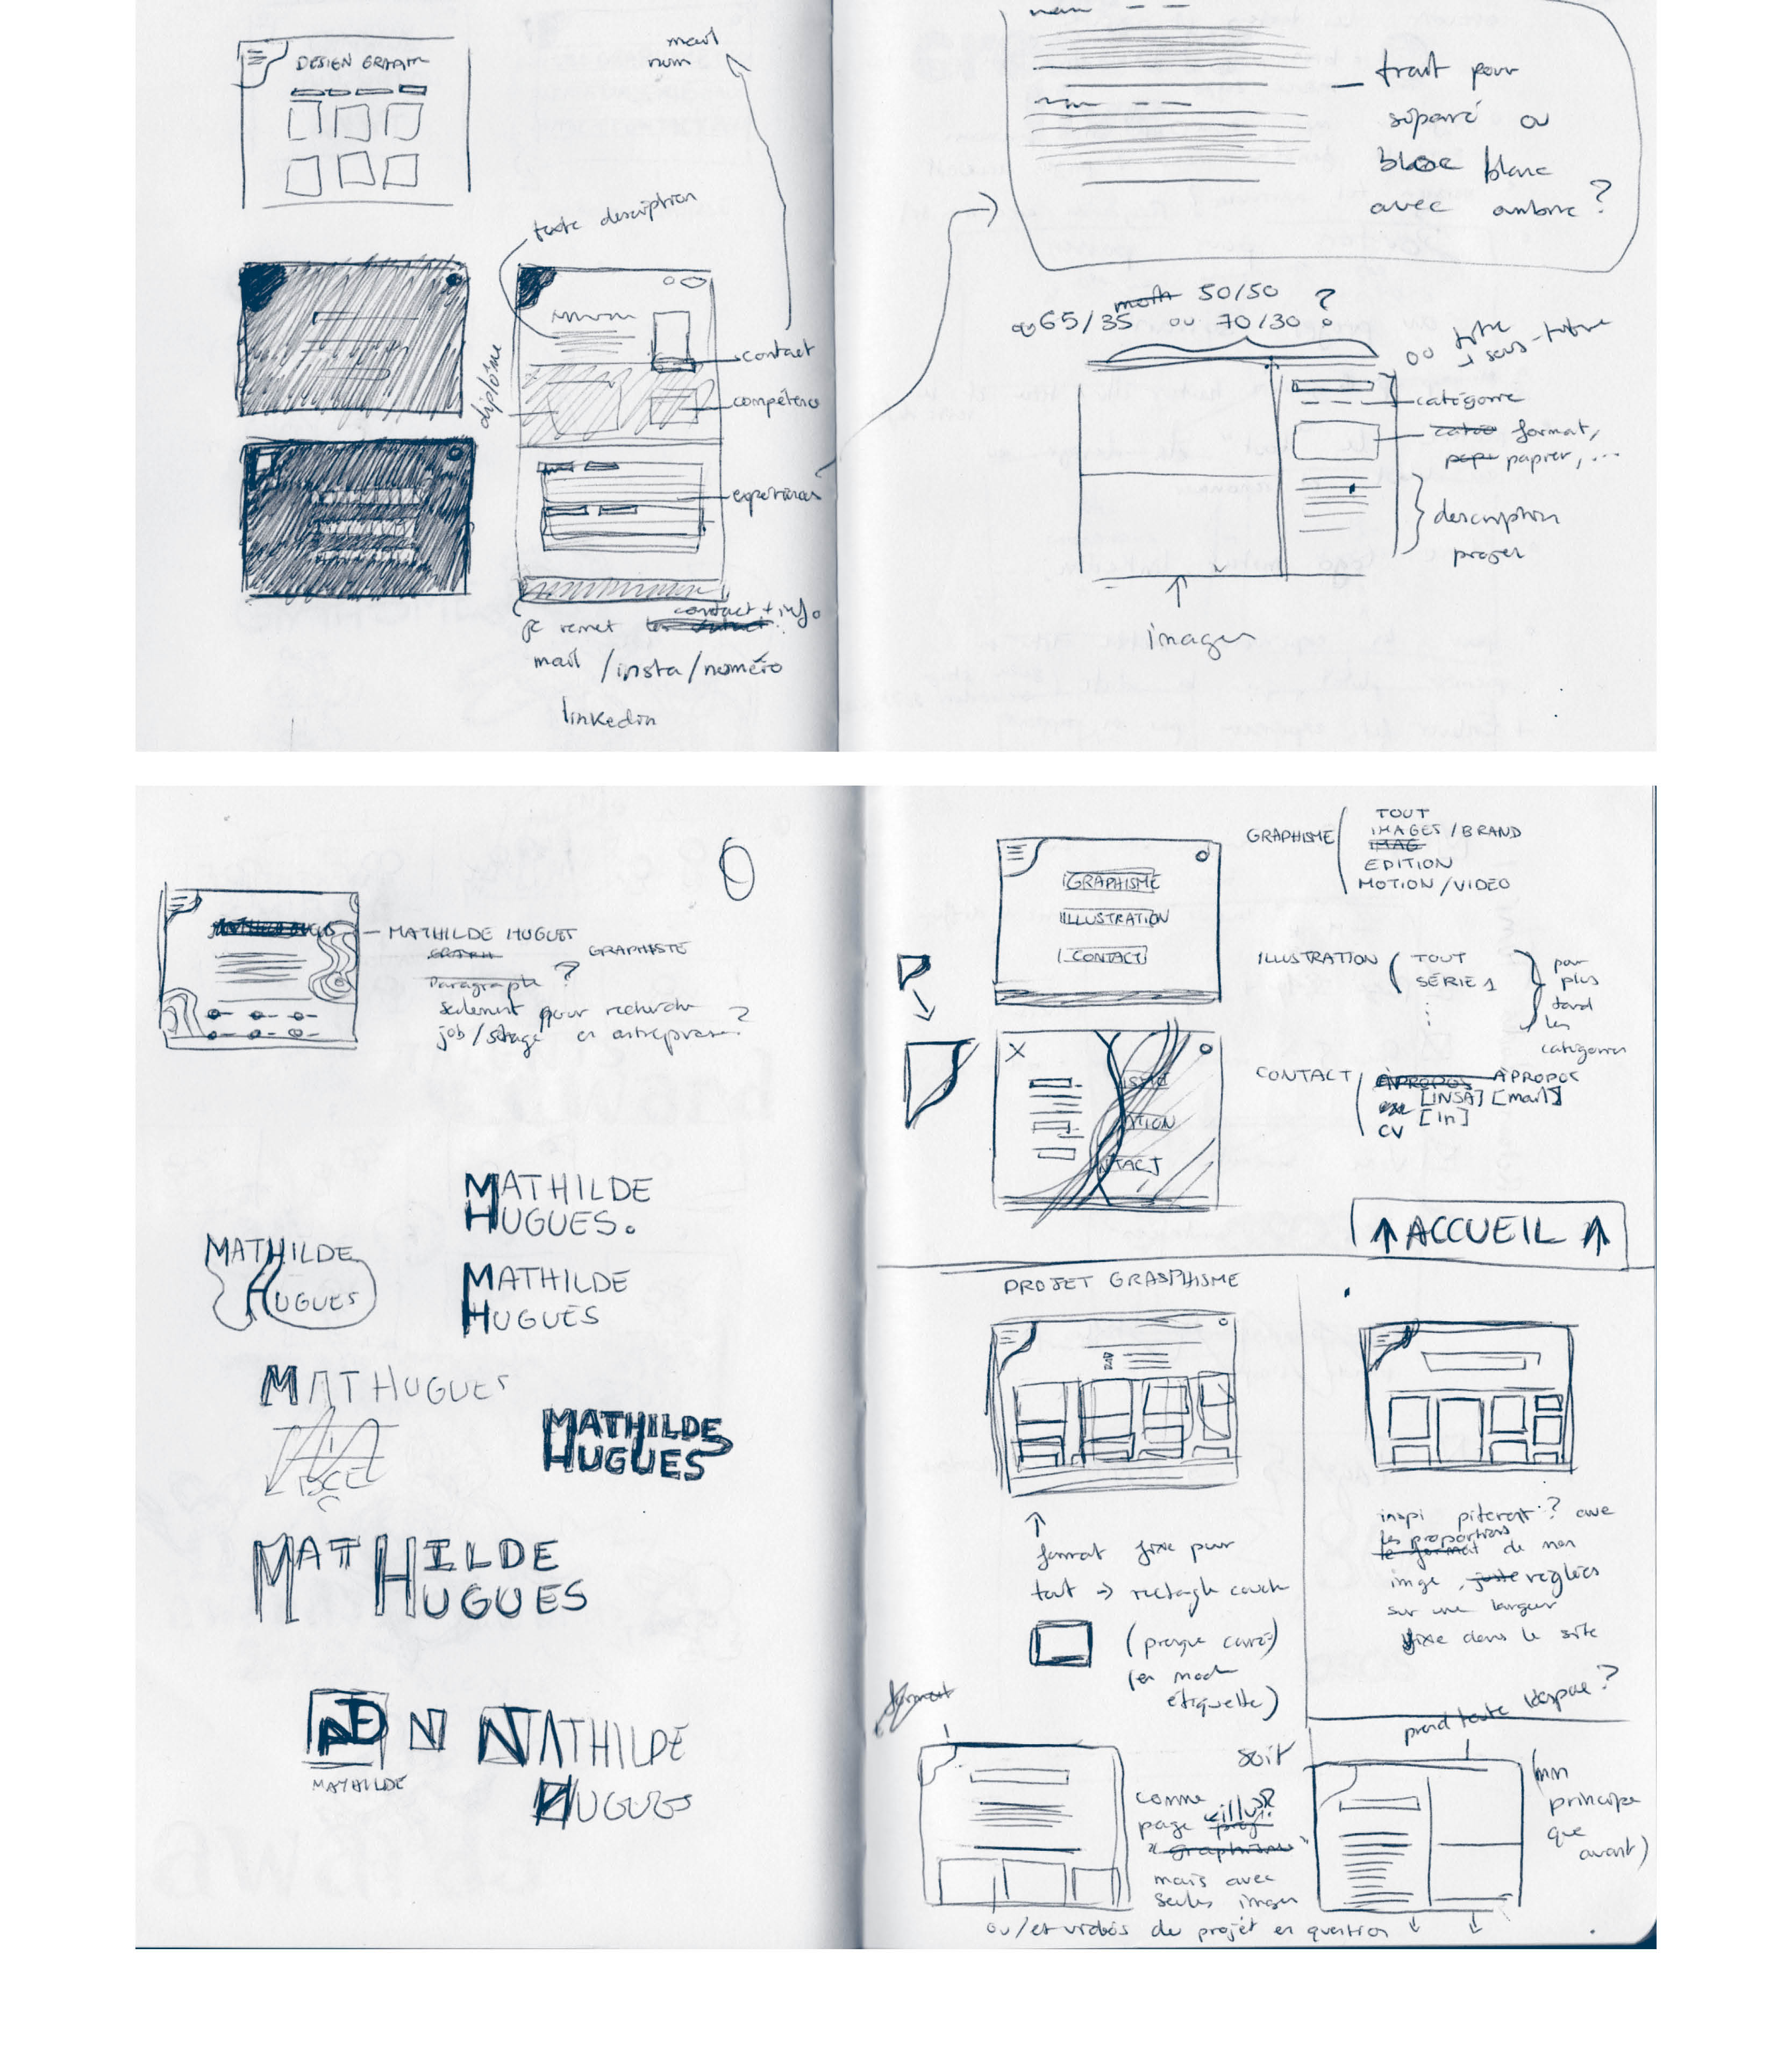 DESIGN GRAPH
mail
num
texte description
diplôme
contact
compétence
expériences
je remet contact + info
mail / insta / numéro
linkedin
trait pour
séparé ou
bloc blanc
avec ombre ?
50/50 ?
ou 65/35 ou 70/30 ?
ou titre
+ sous-titre
catégorie
format,
papier, ...
description
projet
images
MATHILDE HUGUES
GRAPHISTE
Paragraphe ?
seulement pour recherche
job / stage en entreprise ?
MATHILDE
HUGUES.
MATHILDE
HUGUES
MATHILDE
HUGUES
MATHUGUES
MATHILDE
HUGUES
MATHILDE
HUGUES
MATHILDE
MATHILDE
HUGUES
GRAPHISME
TOUT
IMAGES / BRAND
IMAG
EDITION
MOTION / VIDEO
GRAPHISME
ILLUSTRATION
CONTACT
ILLUSTRATION
TOUT
SÉRIE 1
par
plus
tard
les
catégories
X
ATION
NTACT
CONTACT
À PROPOS À PROPOS
[INSA] [mail]
[in]
CV
↑ ACCUEIL ↑
PROJET GRASPHISME
format fixe pour
tout → rectagle couch
(presque carré)
(en mode
étiquette)
inspi piterest ? avec
les proportions
le format de mon
imge, juste réglées
sur une largeur
fixe dans le site
format
soit
comme
page illus
"graphisme"
mais avec
seules images
ou/et vidéos du projet en question
prend toute l'espace ?
(mm
principe
que
avant)